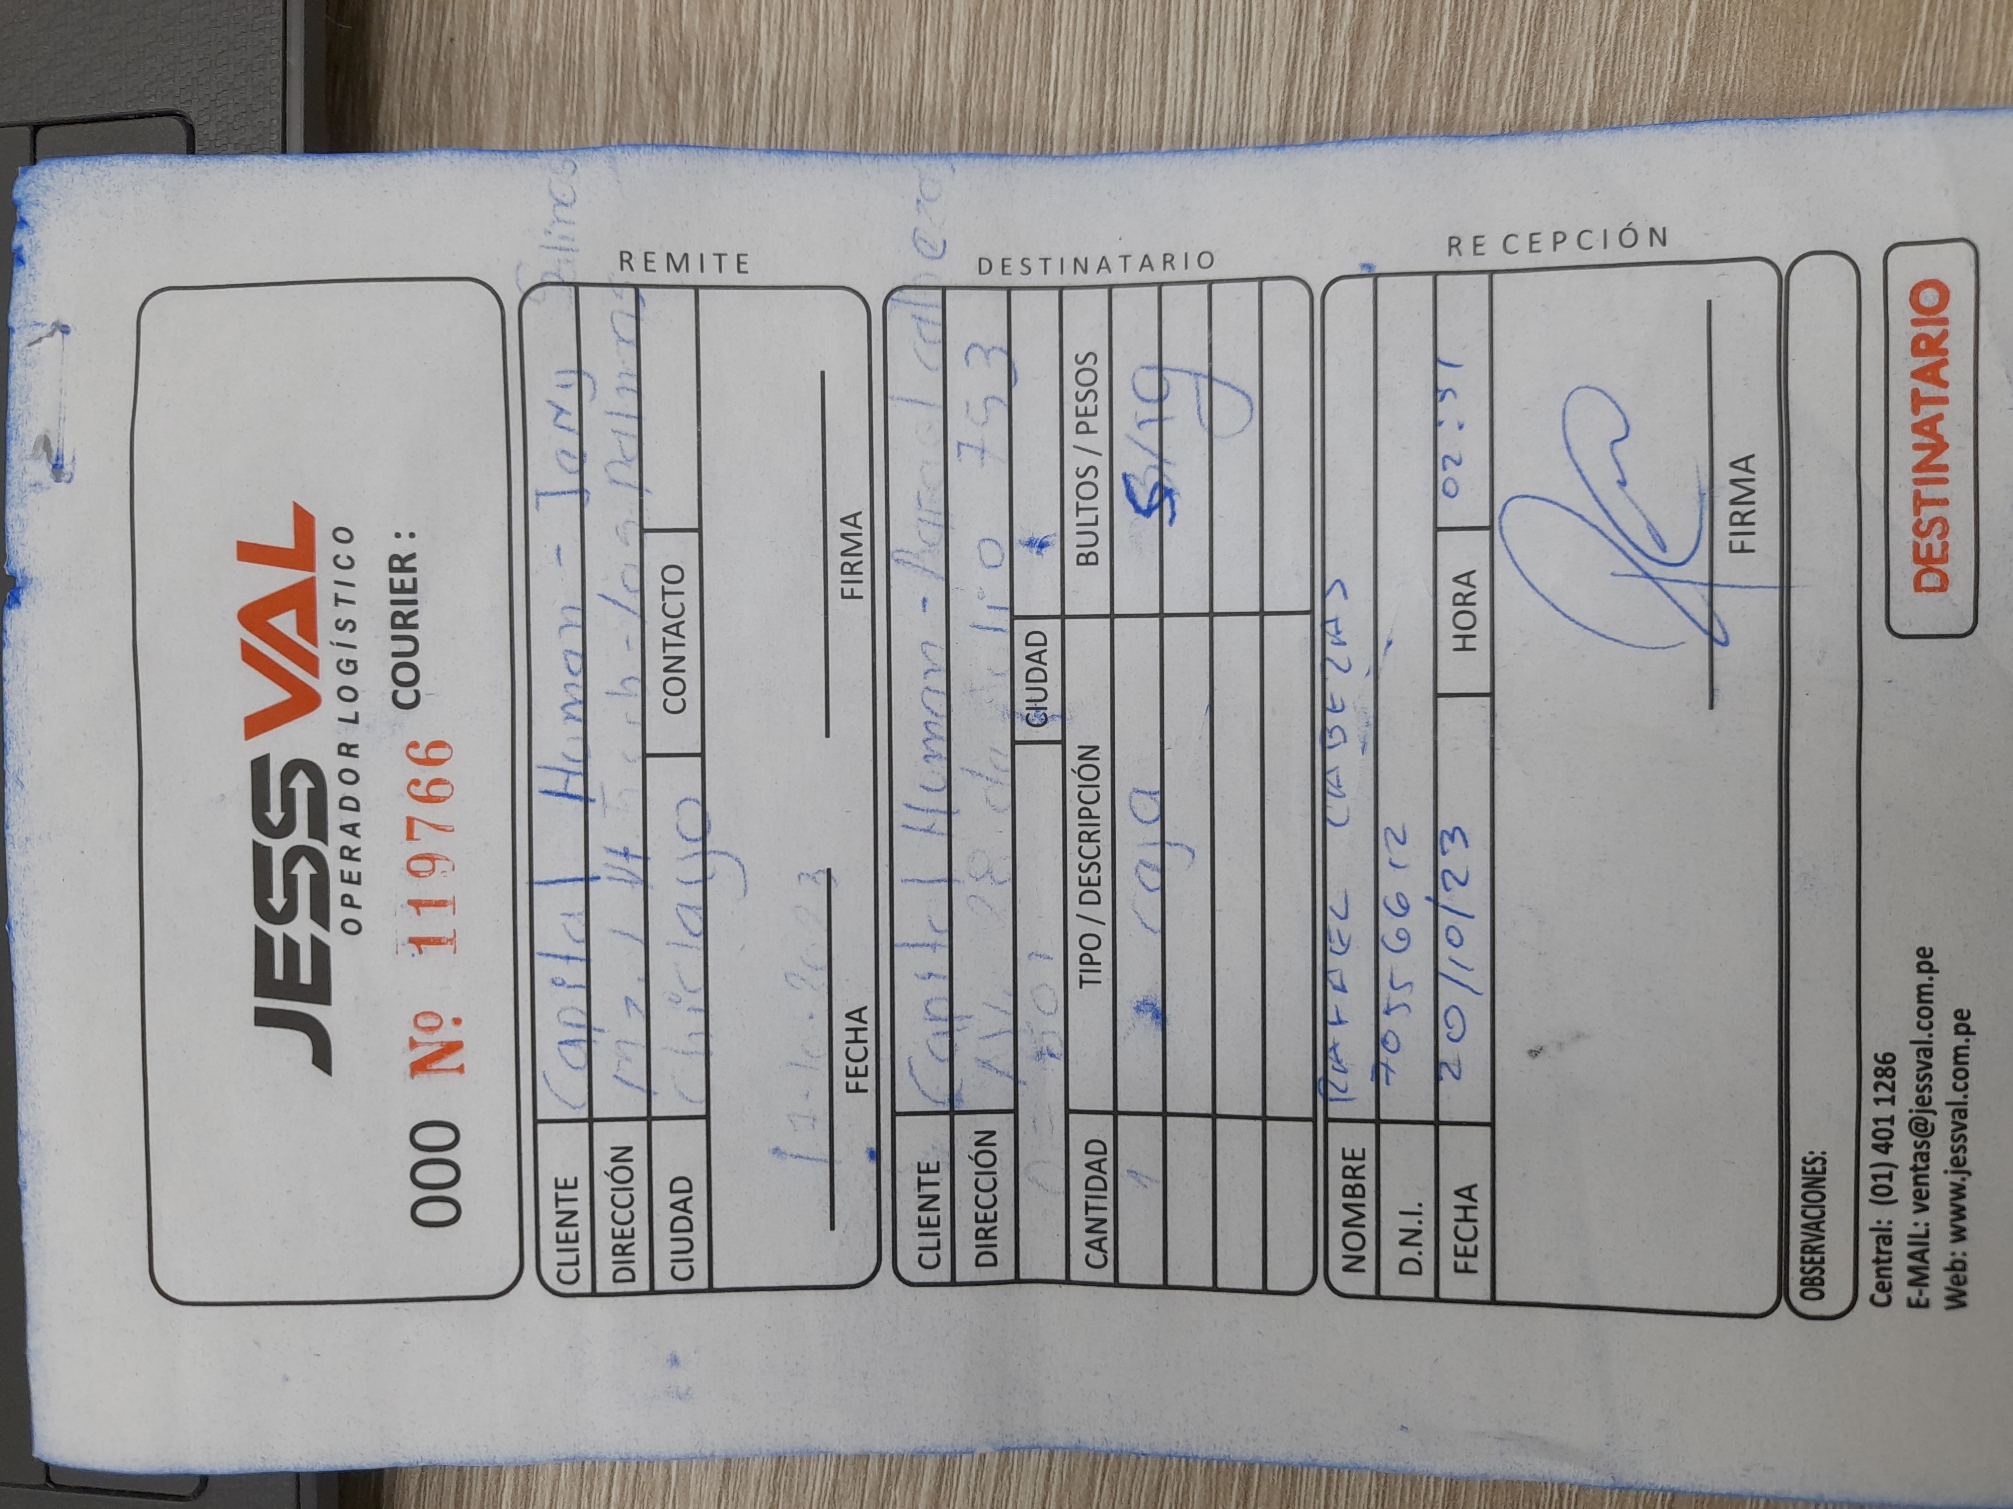 JESS VAL
OPERADOR LOGÍSTICO
000 Nº 119766 COURIER :
REMITE
CLIENTE Capital Human - Jeny Salinas
DIRECCIÓN Mz. Palmas
CIUDAD Chiclayo CONTACTO
17-10-2023
FECHA FIRMA
DESTINATARIO
CLIENTE Capital Human - Rafael Cabezas
DIRECCIÓN Av. 28 de Julio 753
CIUDAD
CANTIDAD TIPO / DESCRIPCIÓN BULTOS / PESOS
1 caja
RECEPCIÓN
NOMBRE RAFAEL CABEZAS
D.N.I. 70556612
FECHA 20/10/23 HORA
FIRMA
OBSERVACIONES:
Central: (01) 401 1286
E-MAIL: ventas@jessval.com.pe
Web: www.jessval.com.pe
DESTINATARIO